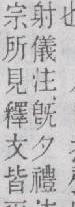 也
射儀注既夕禮
宗所見釋文皆